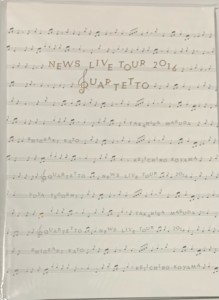 NEWS LIVE TOUR 2016
QUARTETTO